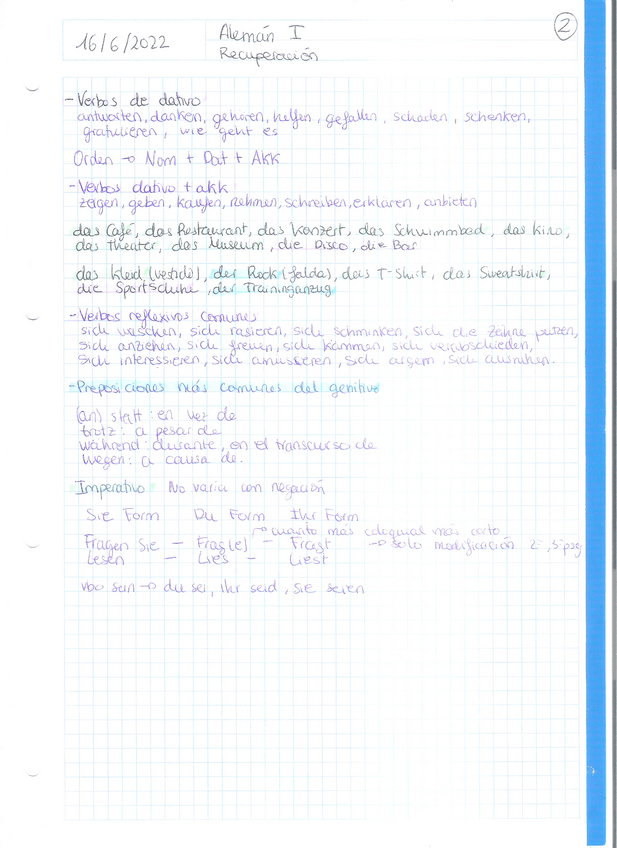 16/6/2022
Alemán I
Recuperación
2
- Verbos de dativo
antworten, danken, gehören, helfen, gefallen, schaden, schenken,
gratulieren, wie geht es
Orden → Nom + Dat + Akk
- Verbos dativo + akk
zeigen, geben, kaufen, nehmen, schreiben, erklären, anbieten
das Café, das Restaurant, das Konzert, das Schwimmbad, das Kino,
das Theater, das Museum, die Disco, die Bar
das Kleid (vestido), der Rock (falda), das T-Shirt, das Sweatshirt,
die Sportschuhe, der Traininganzug
- Verbos reflexivos comunes
sich waschen, sich rasieren, sich schminken, sich die Zähne putzen,
sich anziehen, sich freuen, sich kämmen, sich verabschieden,
sich interessieren, sich amüsieren, sich ärgern, sich ausruhen.
- Preposiciones más comunes del genitivo
(an) statt: en vez de
trotz: a pesar de
während: durante, en el transcurso de
wegen: a causa de.
Imperativo: No varia con negación
Sie Form Du Form Ihr Form
→ cuanto más coloquial más corto
Fragen Sie - Frag(e) - Fragt → solo modificación 2ª, 3ª psg
Lesen - Lies - Liest
vbo sein → du sei, ihr seid, Sie seien